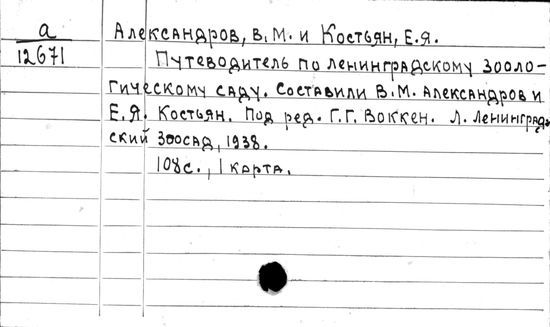 а
12671
Александров, В.М. и Костьян, Е.Я.
Путеводитель по ленинградскому зооло-
гическому саду. Составили В.М. Александров и
Е.Я. Костьян. Под ред. Г.Г. Воккен. Л. Ленинград-
ский Зоосад, 1938.
108с., 1 карта.